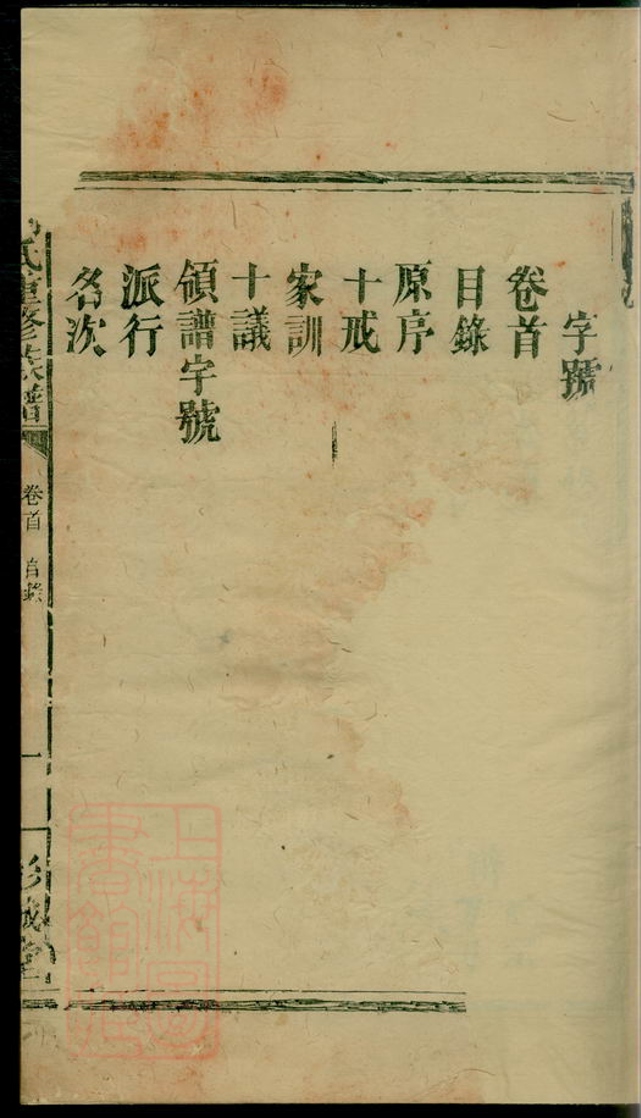 字號
卷首
目錄
原序
十戒
家訓
十議
領譜字號
派行
名次
氏重修族譜
卷首 目錄
一
彭城堂
上海圖書館藏